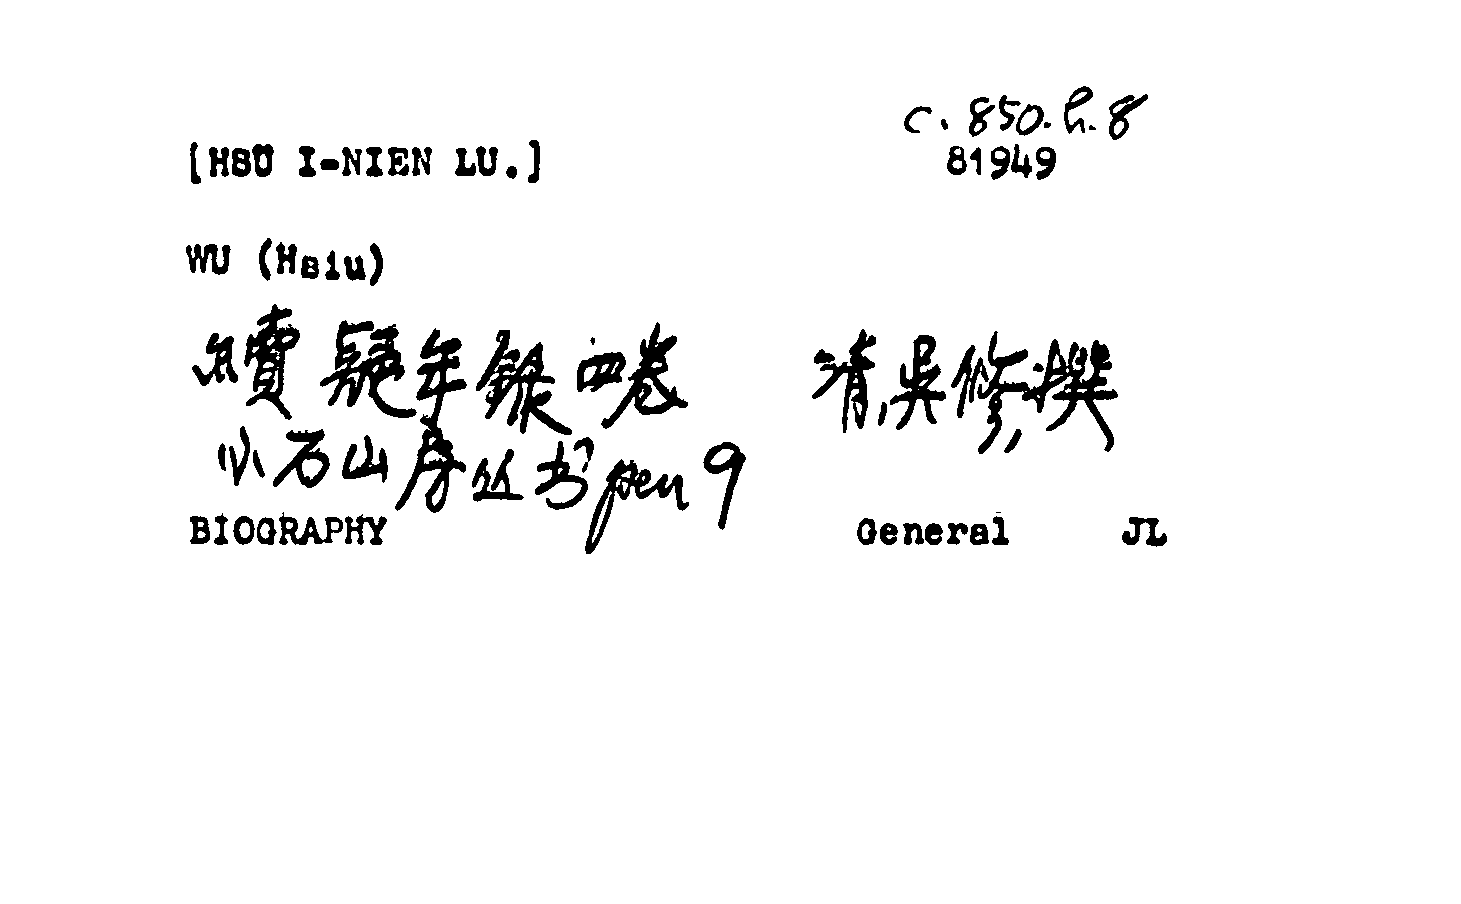 c. 850. h. 8
[HSÜ I-NIEN LU.]
81949
WU (Hsiu)
續疑年錄四卷 清吳修撰
小石山房丛书 pen 9
BIOGRAPHY General JL